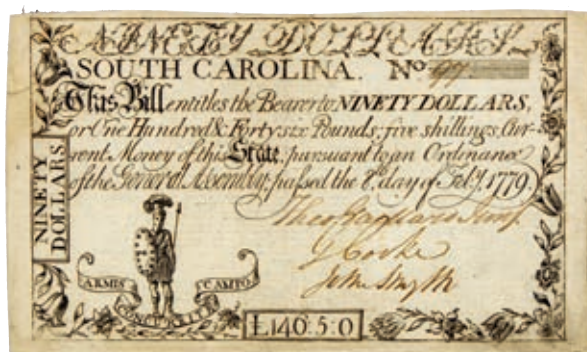 NINETY DOLLARS.
SOUTH CAROLINA. No. 97
This Bill entitles the Bearer to NINETY DOLLARS,
or One Hundred & Forty-six Pounds, five shillings, Cur-
rent Money of this State, pursuant to an Ordinance
of the General Assembly, passed the 8.th day of Feb.y 1779.
NINETY
DOLLARS
J Cooke
John Smyth
ARMIS CAMPO
CONCURRITE
£146:5:0